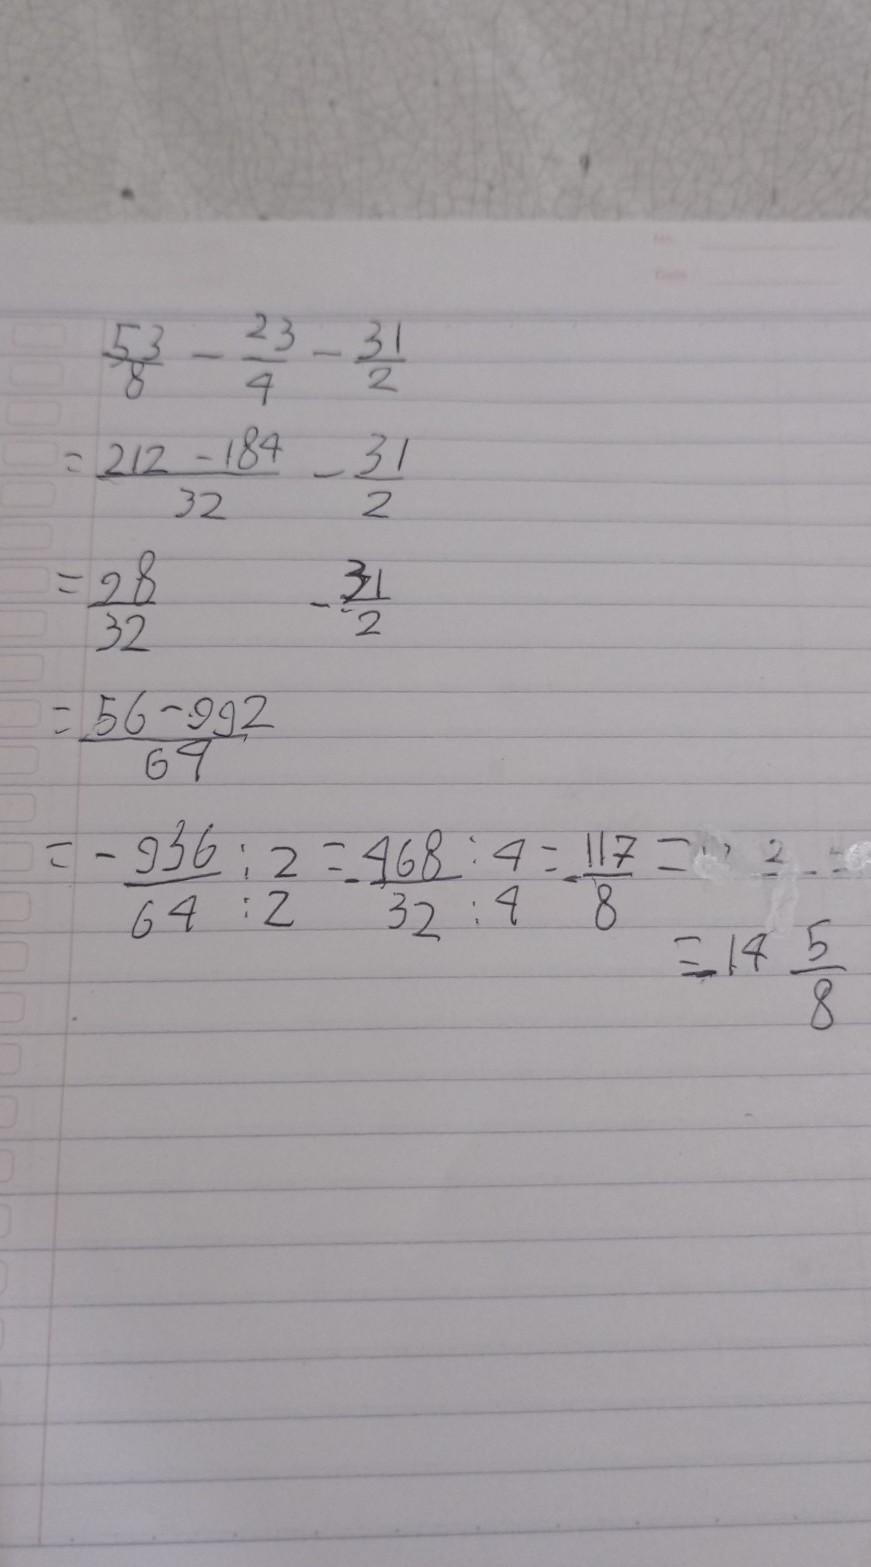 53/8 - 23/4 - 31/2
= 212 - 184/32 - 31/2
= 28/32 - 31/2
= 56 - 992/64
= - 936/64 : 2/2 = - 468/32 : 4/4 = - 117/8 =
= - 14 5/8